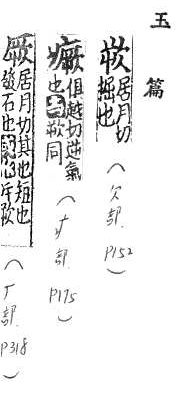 玉篇
欮居月切掘也（欠部 P152）
瘚俱越切逆氣也欮同（疒部 P175）
厥居月切其也短也發石也（厂部 P318）